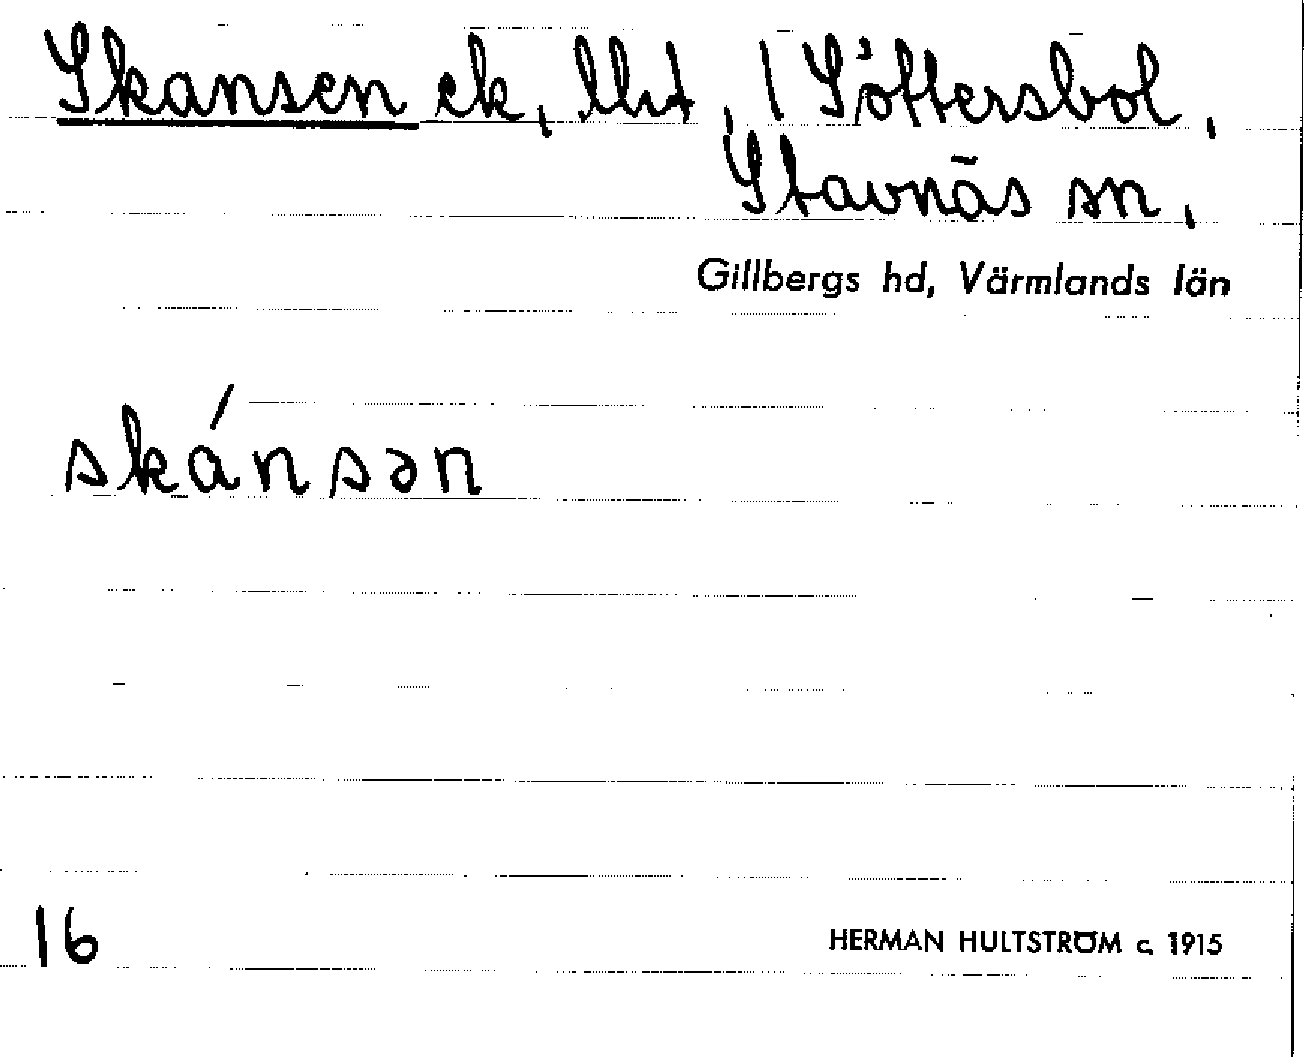 Skansen ek, lht, 1 Söttersbol,
Stavnäs sn,
Gillbergs hd, Värmlands län
skánsən
16
HERMAN HULTSTRÖM c. 1915